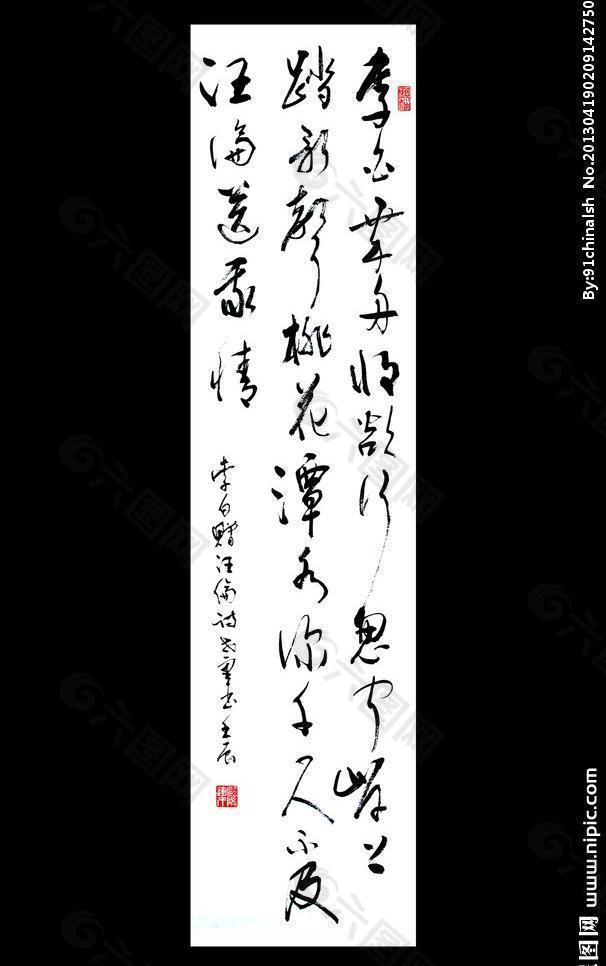 李白乘舟将欲行忽闻岸上
踏歌聲桃花潭水深千尺不及
汪倫送我情
李白贈汪倫诗书壬辰
By:91chinalsh No.201304190209142750
图网 www.nipic.com
六图网